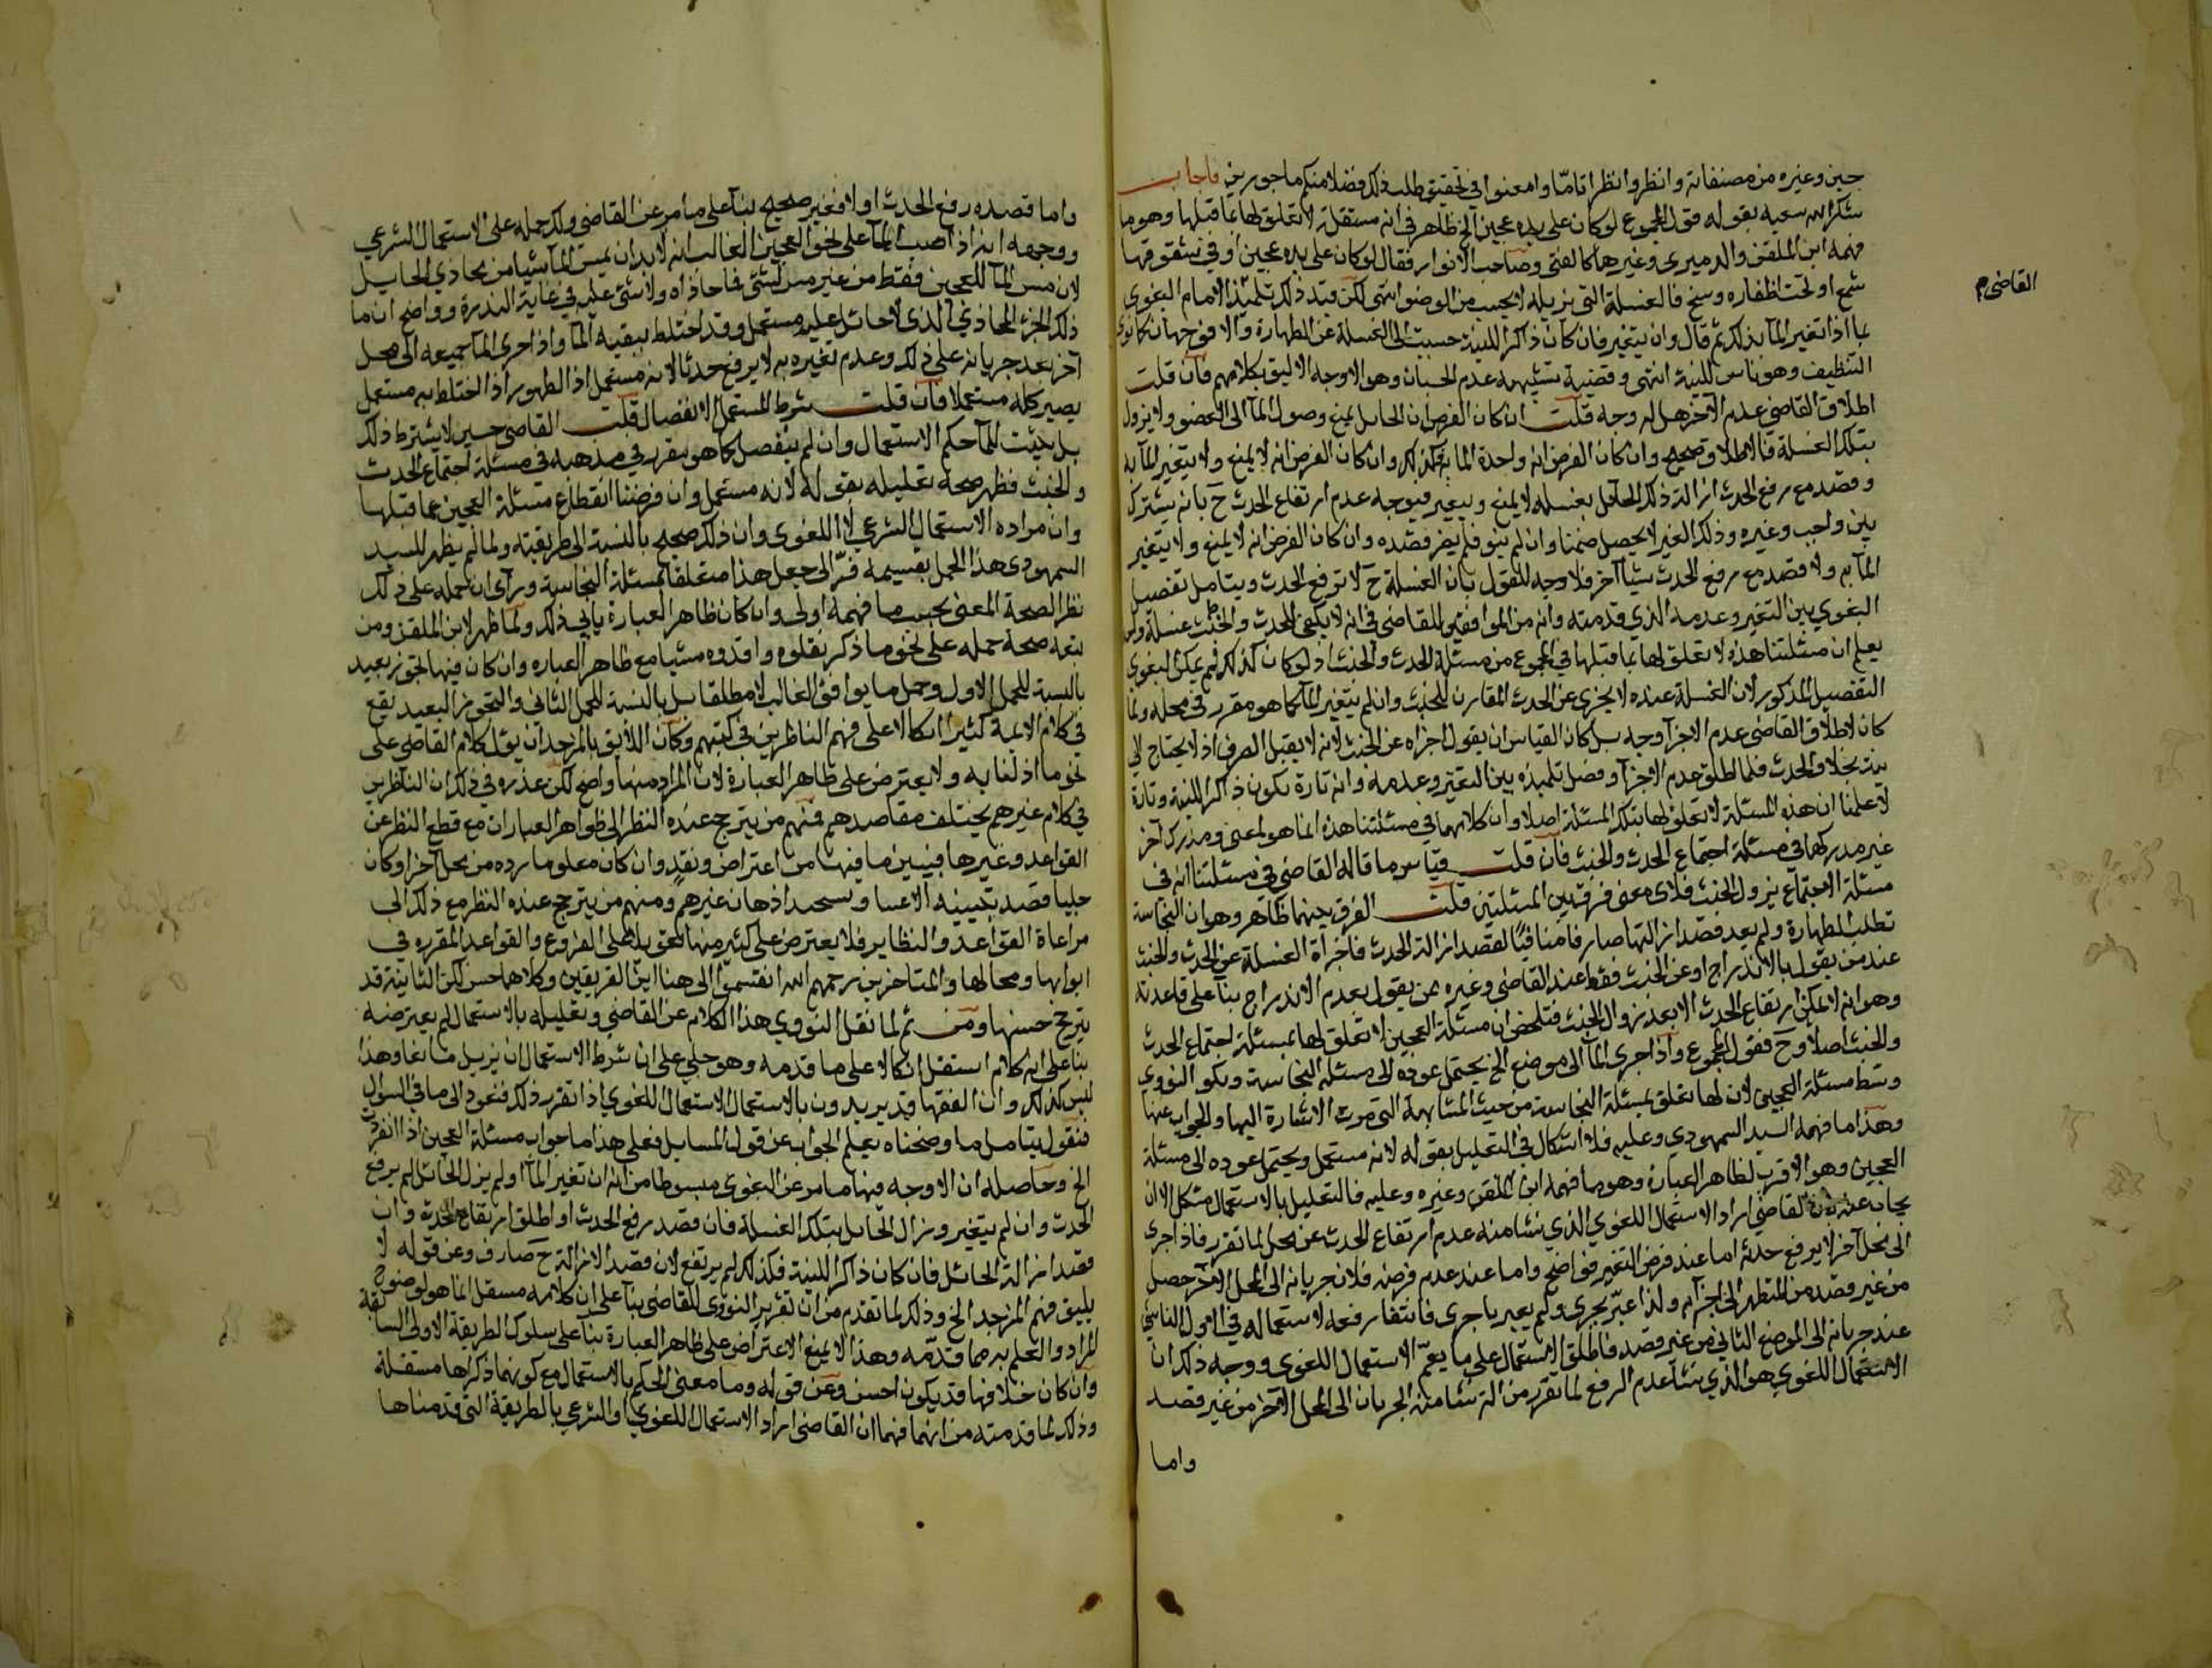 حين وغيره من مصنفاته وانظروا نظرا تامّا وامعنوا في تحقيق طلب ذلك فضلا منكم ماجورين فاجاب
شكر الله سعيه بقوله قول المجموع لو كان على يده عجين الخ ظاهر في انه مستقلة لا تعلق لها بما قبلها وهو ما
فهمه ابن الملقن والدميرى وغيرهما كالفتى وصاحب الانوار فقال لو كان على يده عجين او في شقوقها
شمع او تحت اظفاره وسخ فالغسلة التى نزيله لا يحسب من الوضوء انتهى لكن قيد ذلك تلميذه الامام البغوى
القاضى م
بما اذا تغير الماء بذلك ثم قال وان لم يتغير فان كان ذاكرا للنية حسبت تلك الغسلة عن الطهارة والا فوجهان كما نوى
التنظيف وهو ناس للنية انتهى وقضية تشبيهه عدم الحسبان وهو الاوجه الاليق بكلامهم فان قلت
اطلاق القاضى عدم الاخر هل له وجه قلت ان كان الفرض ان الحائل يمنع وصول الماء الى العضو ولا يزول
بتلك الغسلة فالاطلاق صحيح وان كان الفرض انه واحدة الماء به فكذلك وان كان الفرض انه لا يمنع ولا يتغير الماء به
وقصد مع رفع الحدث ازالة ذلك الحائل بغسله لا يمنع ويتغير فيوجه عدم ارتفاع الحدث ح بانه يشترك
بين واجب وغيره وذلك الغير لا يحصل ضمنا وان لم ينو فلم يضر قصده وان كان الفرض انه لا يمنع ولا يتغير
الماء به ولا قصد مع رفع الحدث شيا آخر فلا وجه للقول بان الغسلة ح لا ترفع الحدث ويتامل تفصيل
البغوي بين التغير وعدمه الذي قدمته وانه من الموافقين للقاضى في انه لا يكفى للحدث والخبث غسلة واحدة
يعلم ان مسئلتنا هذه لا تعلق لها بما قبلها في المجموع من مسئلة الحدث والخبث اذ لو كان كذلك لم يمكن البغوى
التفصيل المذكور لان الغسلة عنده لا يجزى عن الحدث المقارن للخبث وان لم يتغير الماء كما هو مقرر في محله ولما
كان لاطلاق القاضى عدم الاجزآ وجه بل كان القياس ان يقول اجزاه عن الخبث لانه لا يقبل الصرف اذ لا يحتاج الى
نية بخلاف الحدث فلما اطلق عدم الاجزآ وفصل تلميذه بين التغير وعدمه وانه تارة يكون ذاكرا للنية وتارة
لا علمنا ان هذه المسئلة لا تعلق لها بتلك المسئلة اصلا وان كلامهما في مسئلتنا هذه انما هو لمعنى ومدرك آخر
غير مدركها في مسئلة اجتماع الحدث والخبث فان قلت قياس ما قاله القاضى في مسئلتنا انه في
مسئلة الاجتماع يزول الخبث فلاى معنى فرق بين المسئلتين قلت الفرق بينهما ظاهر وهو ان النجاسة
تطلب المطهارة ولم يعد قصد ازالتها صارفا منافيا لقصد ازالة الحدث فاجزاة الغسلة عن الحدث والخبث
عند من يقول بالاندراج او عن الخبث فقط عند القاضى وغيره ممن يقول بعدم الاندراج بنآ على قاعدته
وهو انه لا يمكن ارتفاع الحدث الا بعد زوال الخبث فتلخص ان مسئلة العجين لا تعلق لها بمسئلة اجتماع الحدث
والخبث اصلا وح فقول المجموع واذا جرى الماء الى موضع الخ يحتمل عوده الى مسئلة النجاسة ويكو النووي
وسّط مسئلة العجين لان لها تعلق بمسئلة النجاسة من حيث المشابهة التى مرت الاشارة اليها والجواب عنها
وهذا ما فهمه السيد السمهودي وعليه فلا اشكال في التعليل بقوله لانه مستعمل ويحتمل عوده الى مسئلة
العجين وهو الاقرب لظاهر العبارة وهو ما فهمه ابن الملقن وغيره وعليه فالتعليل بالاستعمال مشكل الا ان
يجاب عنه بان القاضى اراد الاستعمال اللغوي الذي نشا منه عدم ارتفاع الحدث عن محل لما تقرر فاذا جرى
الى محل آخر لا يرفع حدثه اما عند فرض التغير فواضح واما عند عدم فرضه فلان جريانه الى المحل الآخر حصل
من غير قصد من المتطهر الى اجرآيه ولذا عبّر بجرى ولم يعبر باجرى فانتفا رفعه لاستعماله في الاول الناشى
عند جريانه الى الموضع الثانى من غير قصد فاطلق الاستعمال على ما يعمّ الاستعمال اللغوى ووجه ذلك ان
الاستعمال اللغوي هو الذي نشا عدم الرفع لما تقرر من انه نشا منه الجريان الى المحل الآخر من غير قصد
واما
واما قصده رفع الحدث اولا فغير صحيح بنآ على ما مر عن القاضى ولك حمله على الاستعمال الشرعي
ووجهه انه اذا صب الماء على نحو العجين الغالب انه لابد ان يمس الماء شيا من محاذي الحايل
لان مس الماء للعجين فقط من غير مس لشئ مما حاذاه ولا شئ عليه في غاية الندرة وواضح ان ما
ذلك الجزء المحاذي الذى لا حائل عليه مستعمل وقد اختلط ببقية الماء واذا جرى الماء جميعه الى محل
آخر بعد جريانه على ذلك وعدم تغيره به لا يرفع حدثا لانه مستعمل اذ الطهور اذا اختلط به مستعمل
يصير كله مستعملا فان قلت شرط المستعمل الانفصال قلت القاضى حسين لا يشترط ذلك
بل يثبت للماء حكم الاستعمال وان لم ينفصل كما هو مقرر في مذهبه في مسئلة اجتماع الحدث
والخبث فظهر صحة تعليله بقوله لانه مستعمل وان فرضنا انقطاع مسئلة العجين عما قبلها
وان مراده الاستعمال الشرعي لا اللغوى وان ذلك صحيح بالنسبة الى طريقته ولما لم يظهر للسيد
السمهودى هذا الحمل بقسيمه فرّ الى جعل هذا متعلقا بمسئلة النجاسة ورآى ان حمله على ذلك
نظرا لصحة المعنى بحسب ما فهمه اولى وان كان ظاهر العبارة يابى ذلك ولما ظهر لابن الملقن ومن
تبعه صحة حمله على نحو ما ذكر نقلوه واقروه مشيا مع ظاهر العباره وان كان فيها تجوز بعيد
بالنسبة للحمل الاول وحمل ما يوافق الغالب لا مطلقا بل بالنسبة للحمل الثانى والتجوز البعيد يقع
في كلام الايمة كثيرا اتكالا على فهم الناظرين في كتبهم وكان اللائق بالمزجد ان يؤل كلام القاضى على
نحو ما ذلنا به ولا يعترض على ظاهر العبارة لان المراد منها واضح لكن عذره في ذلك ان الناظرين
في كلام غيرهم يختلف مقاصدهم فمنهم من يترجح عنده النظر الى ظواهر العبارات مع قطع النظر عن
القواعد وغيرها فيبين ما فيها من اعتراض ونقد وان كان معلوما رده من محل آخر او كان
جليا قصد بتبيينه الاعتنا وتشحيذ اذهان غيرهم ومنهم من يترجح عنده النظر مع ذلك الى
مراعاة القواعد والنظاير فلا يعترض على كثير منها تعويلا على الفروع والقواعد المقرره في
ابوابها ومحالها والمتاخرين رحمهم الله انقسموا الى هنا اين الفريقين وكلاهما حسن لكن الثانية قد
يترجح حسنها ومن ثم لما نقل النووي هذا الكلام عن القاضي وتعليله بالاستعمال لم يعترضه
بنا على انه كلام استقل اتكالا على ما قدمه وهو جلي على ان شرط الاستعمال ان يزيل مانعا وهذا
ليس كذلك وان الفقها قد يريدون بالاستعمال الاستعمال اللغوي اذا تقرر ذلك فنعود الى ما في السوال
فنقول يتامل ما وضحناه يعلم الجواب عن قول السايل فعلى هذا ما جواب مسئلة العجين اذا انفردت
الخ وحاصله ان الاوجه فيها ما مر عن البغوى مبسوطا من انه ان تغير الماء اولم يزل الحائل لم يرفع
الحدث وان لم يتغير وزال الحايل بتلك الغسلة فان قصد رفع الحدث او اطلق ارتفاع حدثه وان
قصد ازالة الحائل فان كان ذاكرا للنية فكذلك لم يرتفع لان قصد الازالة ح صارف وعن قوله لا
يليق فهم المزجد الخ وذلك لما تقدم من ان تقرير النووى للقاضى بنآ على ان كلامه مستقل انما هو لوضوح
المراد والعلم به مما قدمه وهذا لا يمنع الاعتراض على ظاهر العبارة بنآ على سلوك الطريقة الاولى السابقة
وان كان خلافها قد يكون احسن وعن قوله وما معنى الحكم بالاستعمال مع كونهما ذكراها مستقلة
وذلك لما قدمته من انهما فهما ان القاضى اراد الاستعمال اللغوي او الشرعي بالطريقة التى قدمناها